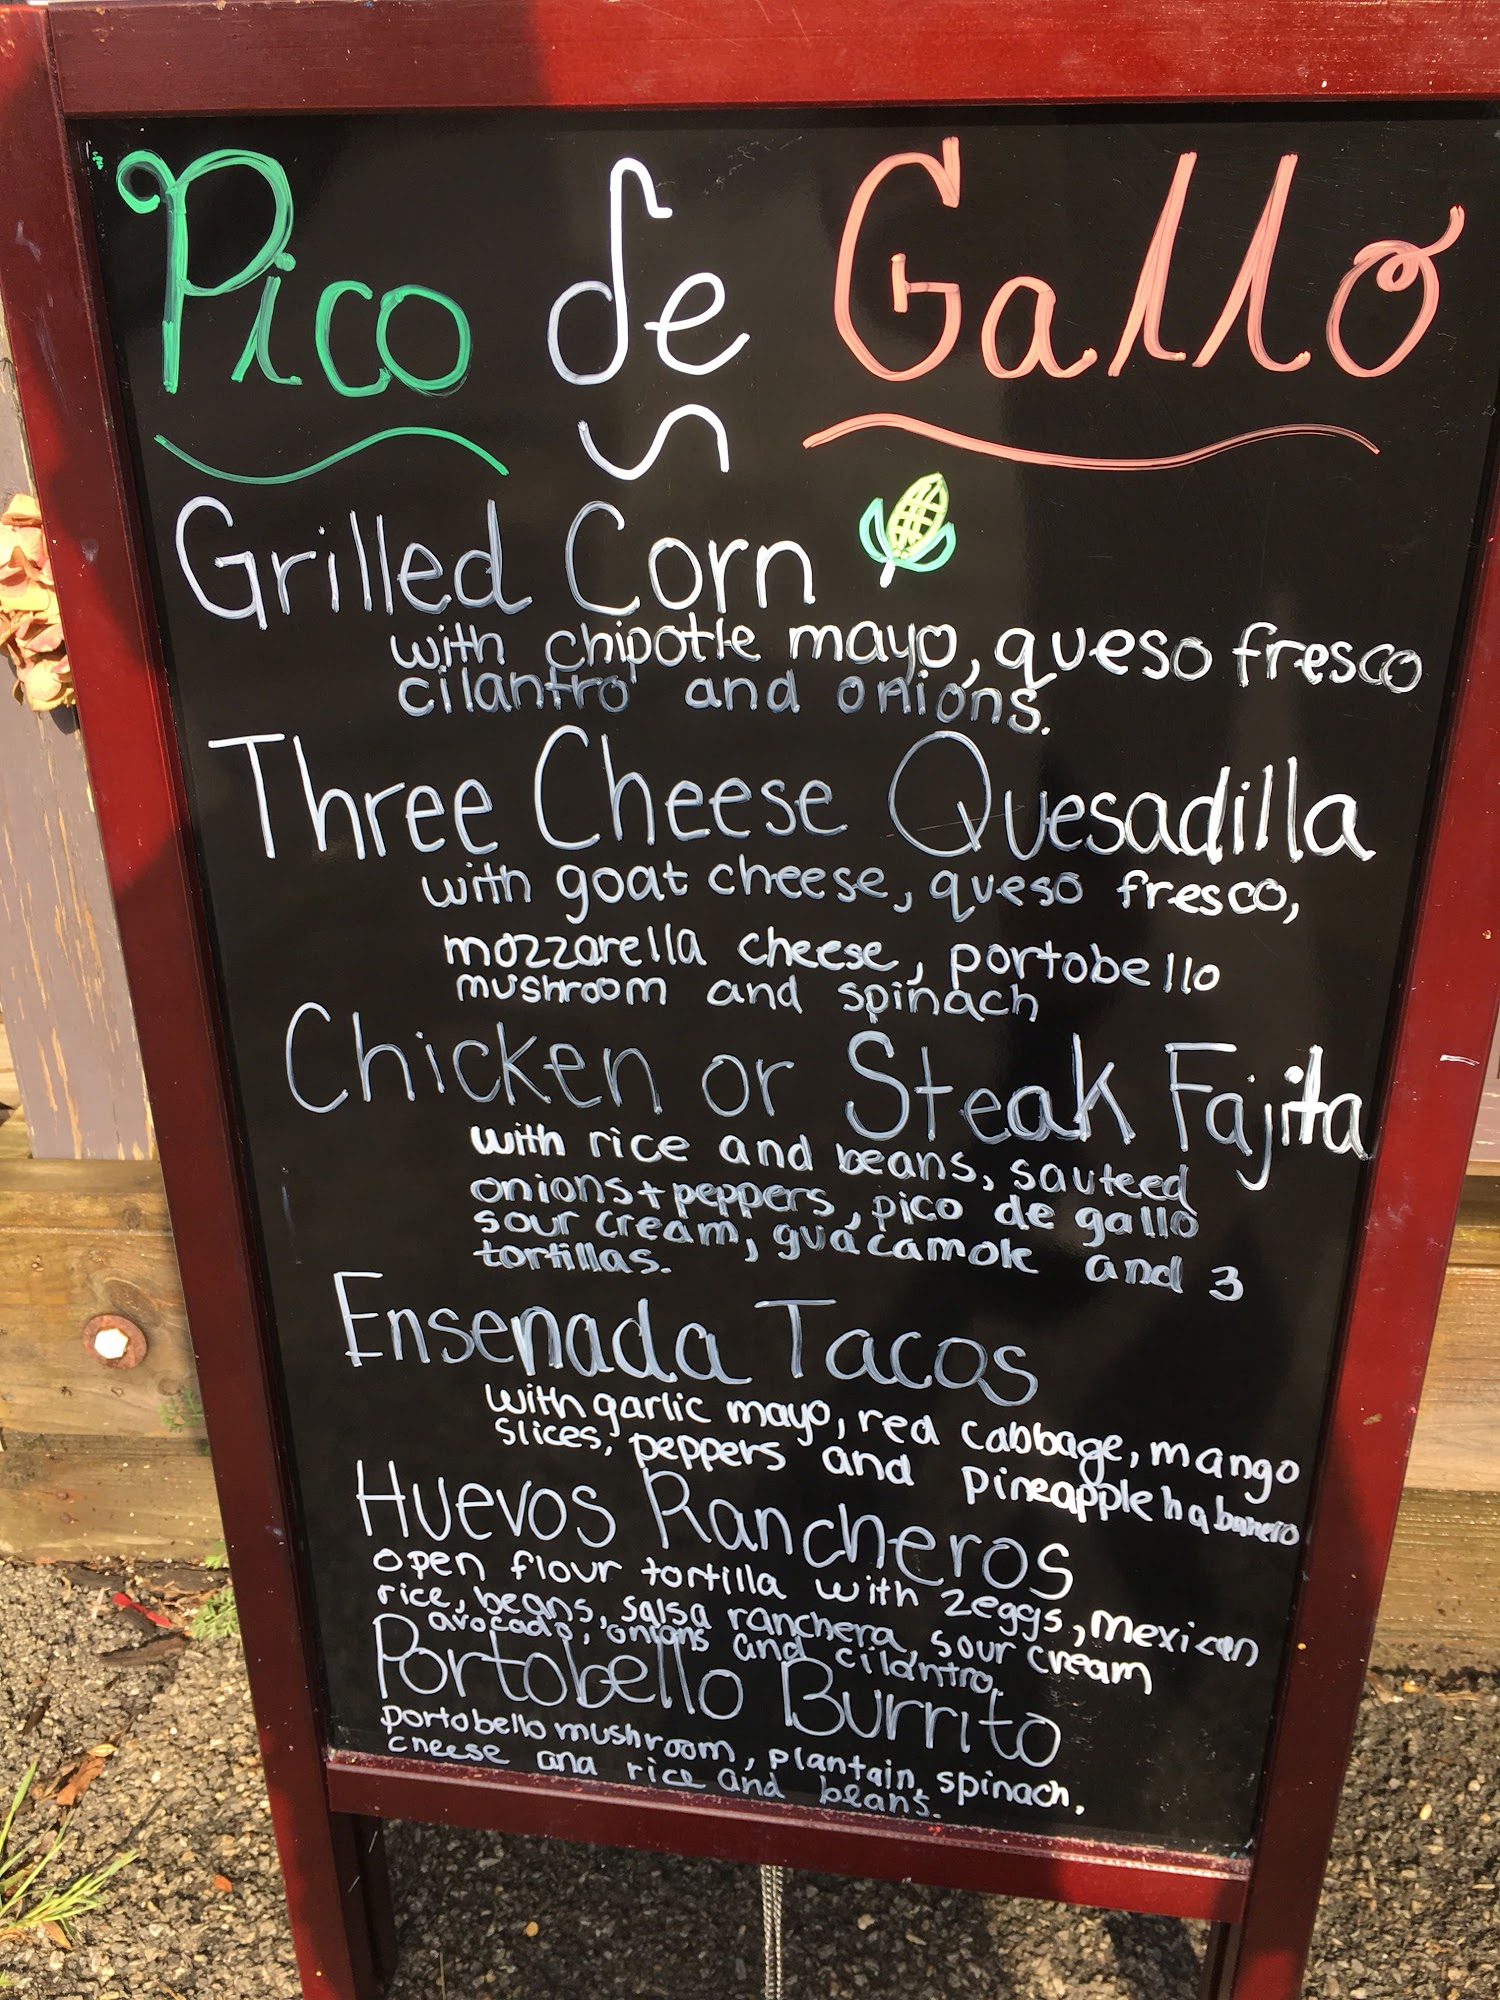 Pico de Gallo
Grilled Corn
with chipotle mayo, queso fresco
cilantro and onions.
Three Cheese Quesadilla
with goat cheese, queso fresco,
mozzarella cheese, portobello
mushroom and spinach
Chicken or Steak Fajita
with rice and beans, sauteed
onions + peppers, pico de gallo
sour cream, guacamole and 3
tortillas.
Ensenada Tacos
with garlic mayo, red cabbage, mango
slices, peppers and pineapple habanero
Huevos Rancheros
open flour tortilla with 2 eggs, mexican
rice, beans, salsa ranchera, sour cream
avocado, onions and cilantro.
Portobello Burrito
portobello mushroom, plantain, spinach,
cheese and rice and beans.